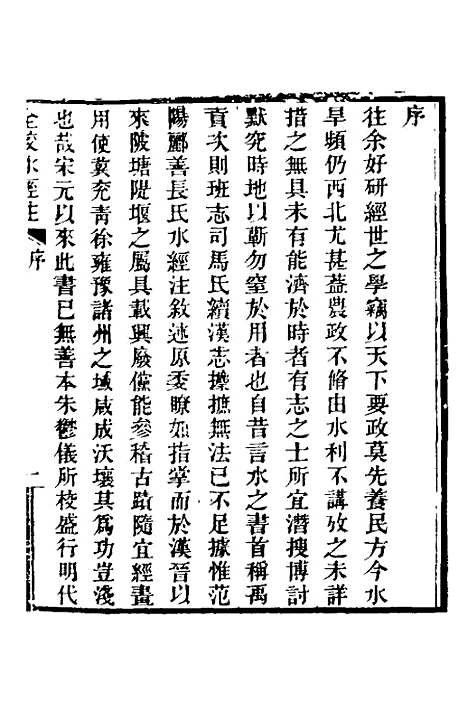 序
往余好研經世之學竊以天下要政莫先養民方今水
旱頻仍西北尤甚蓋農政不脩由水利不講攷之未詳
措之無具未有能濟於時者有志之士所宜潛搜博討
默究時地以蘄勿窒於用者也自昔言水之書首稱禹
貢次則班志司馬氏續漢志摭摭無法已不足據惟范
陽酈善長氏水經注敘述原委瞭如指掌而於漢晉以
來陂塘隄堰之屬具載興廢儻能參稽古蹟隨宜經畫
用使冀兗靑徐雍豫諸州之域咸成沃壤其爲功豈淺
也哉宋元以來此書已無善本朱鬱儀所校盛行明代
全校水經注 序 一